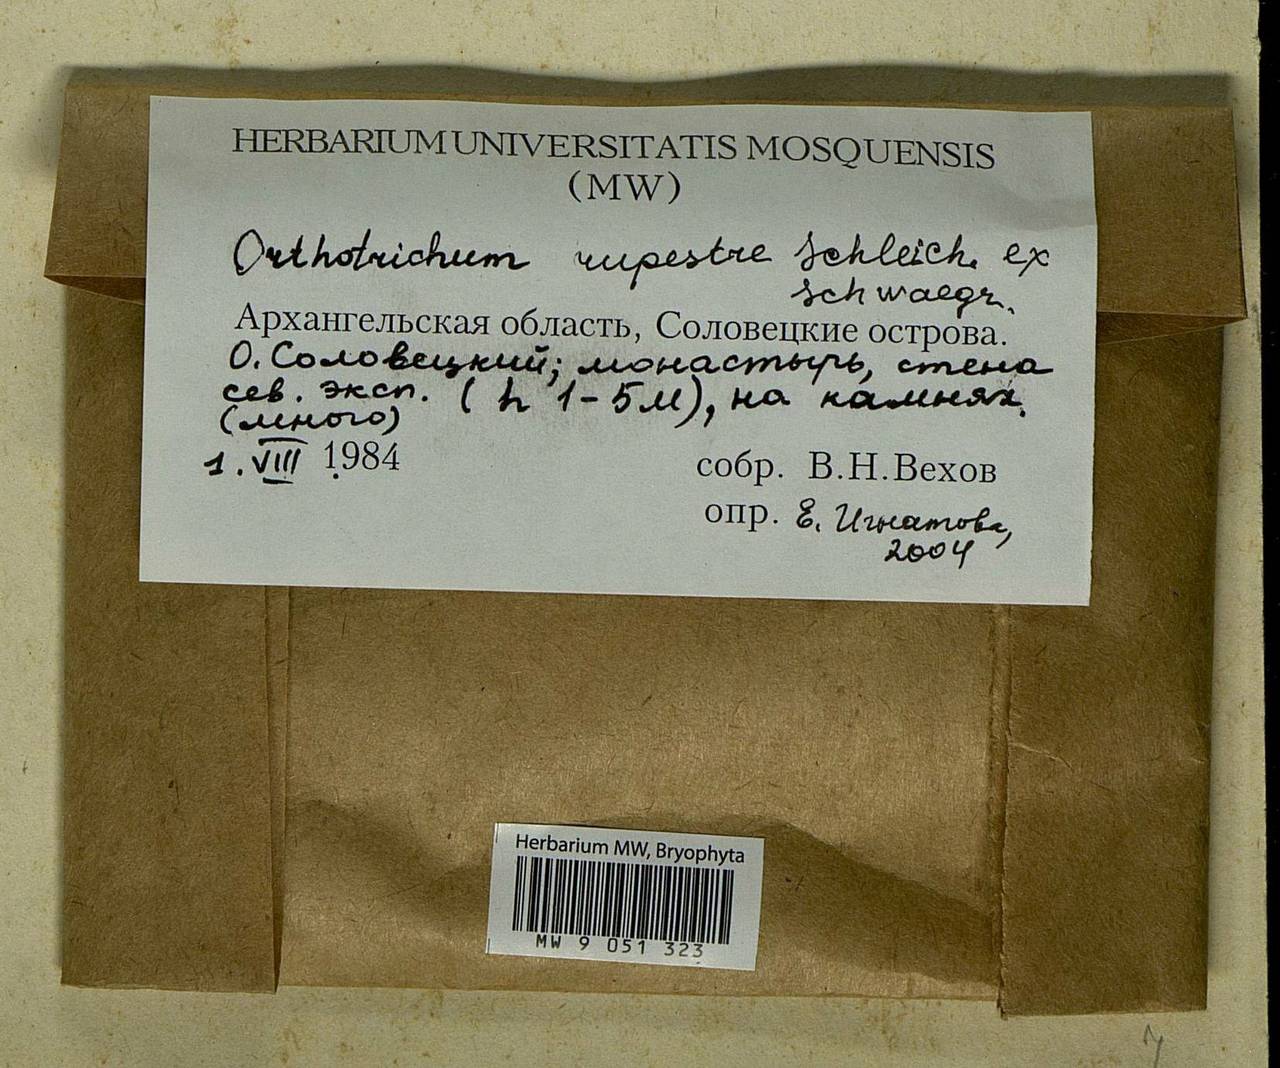 HERBARIUM UNIVERSITATIS MOSQUENSIS
(MW)
Orthotrichum rupestre Schleich. ex
Schwaegr.
Архангельская область, Соловецкие острова.
О. Соловецкий; монастырь, стена
сев. эксп. (h 1-5м), на камнях.
(много)
1. VIII 1984
собр. В.Н.Вехов
опр. Е. Игнатова,
2004
Herbarium MW, Bryophyta
MW 9 051 323